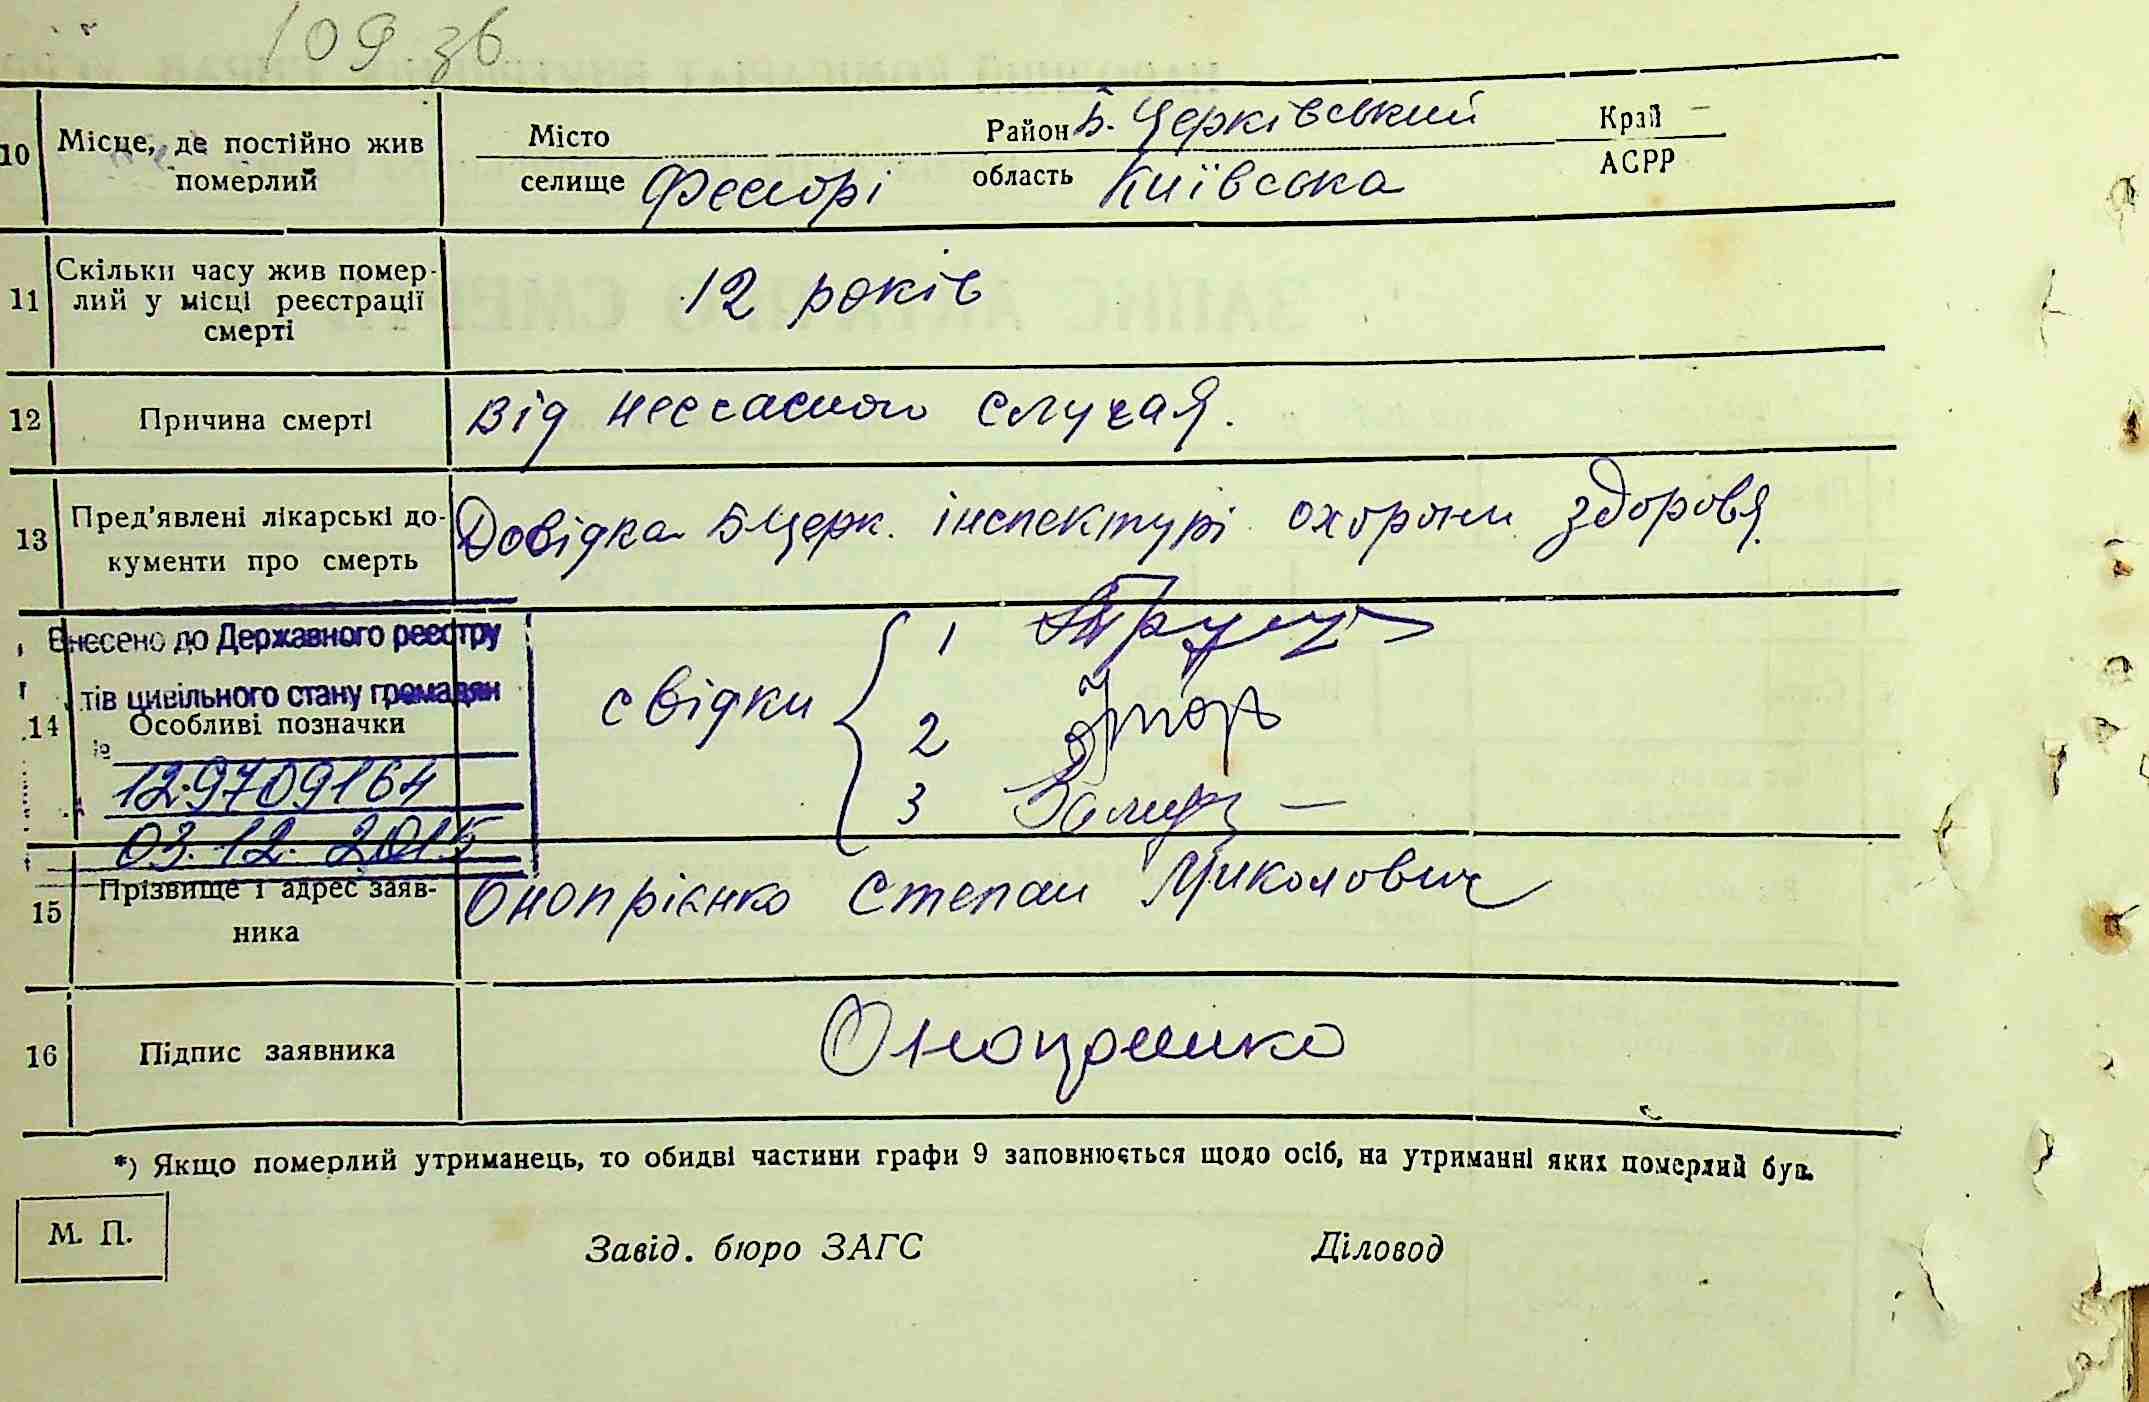 109 зв
10 Місце, де постійно жив померлий
Місто Район Б. Церківський Край –
селище Фесюрі область Київська АСРР
11 Скільки часу жив помер-
лий у місці реєстрації
смерті
12 років
12 Причина смерті
від нессасного случая.
13 Пред'явлені лікарські до-
кументи про смерть
Довідка БЦерк. інспектурі охорони здоровя.
Внесено до Державного реєстру
тів цивільного стану громадян
14 Особливі позначки
№
12.9709164
03.12.2015
свідки
1
2
3
15 Прізвище і адрес заяв-
ника
Онопрієнко Степан Миколович
16 Підпис заявника
*) Якщо померлий утриманець, то обидві частини графи 9 заповнюється щодо осіб, на утриманні яких померлий був.
М. П.
Завід. бюро ЗАГС Діловод